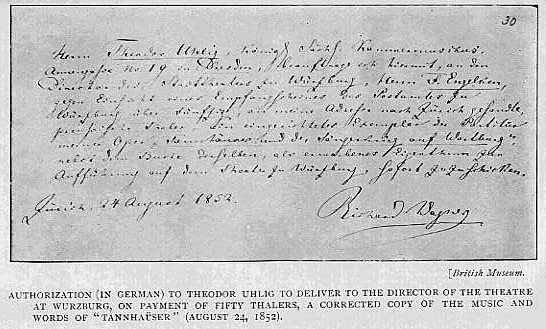 30
Herrn Theodor Uhlig, Königl. Sächs. Kammermusikus,
No 19 in Dresden, beauftrage ich hiermit, an den
Director des Stadttheaters zu Würzburg Herrn F. Engelken,
gegen eines Empfangscheines des Postamtes zu
Würzburg über fünfzig, an meine Adresse nach Zürich gesandte,
Thaler, Ein eingerichtetes Exemplar der Partitur
meiner Oper, "Tannhäuser und der Sängerkrieg auf Wartburg",
nebst dem Buche derselben, als Eigenthum zur
Aufführung auf dem Theater zu Würzburg, sofort zuzuschicken.
Zürich, 24 August 1852.
Richard Wagner
[British Museum.
AUTHORIZATION (IN GERMAN) TO THEODOR UHLIG TO DELIVER TO THE DIRECTOR OF THE THEATRE
AT WURZBURG, ON PAYMENT OF FIFTY THALERS, A CORRECTED COPY OF THE MUSIC AND
WORDS OF "TANNHAÜSER" (AUGUST 24, 1852).